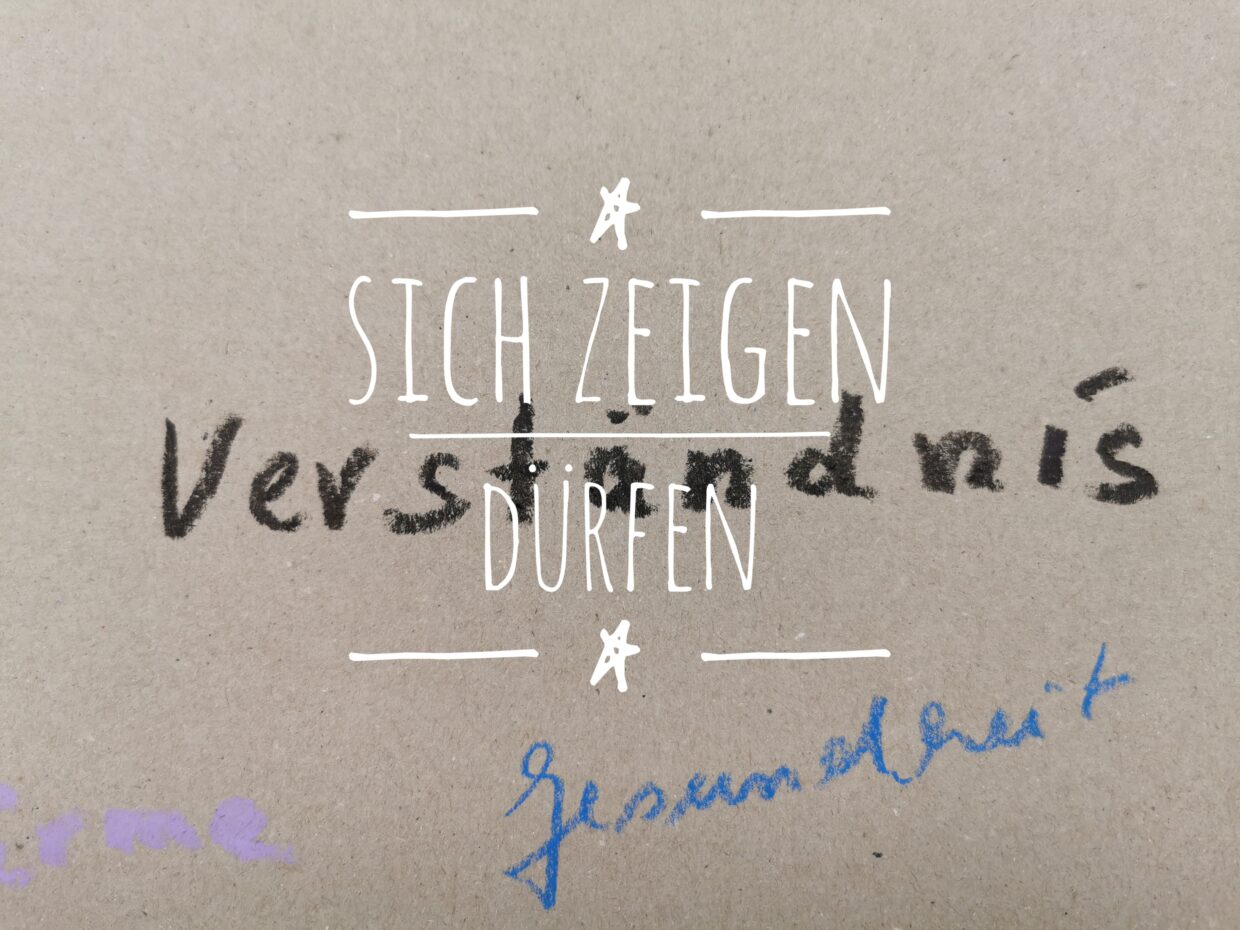 SICH ZEIGEN
Verständnis
DÜRFEN
Gesundheit